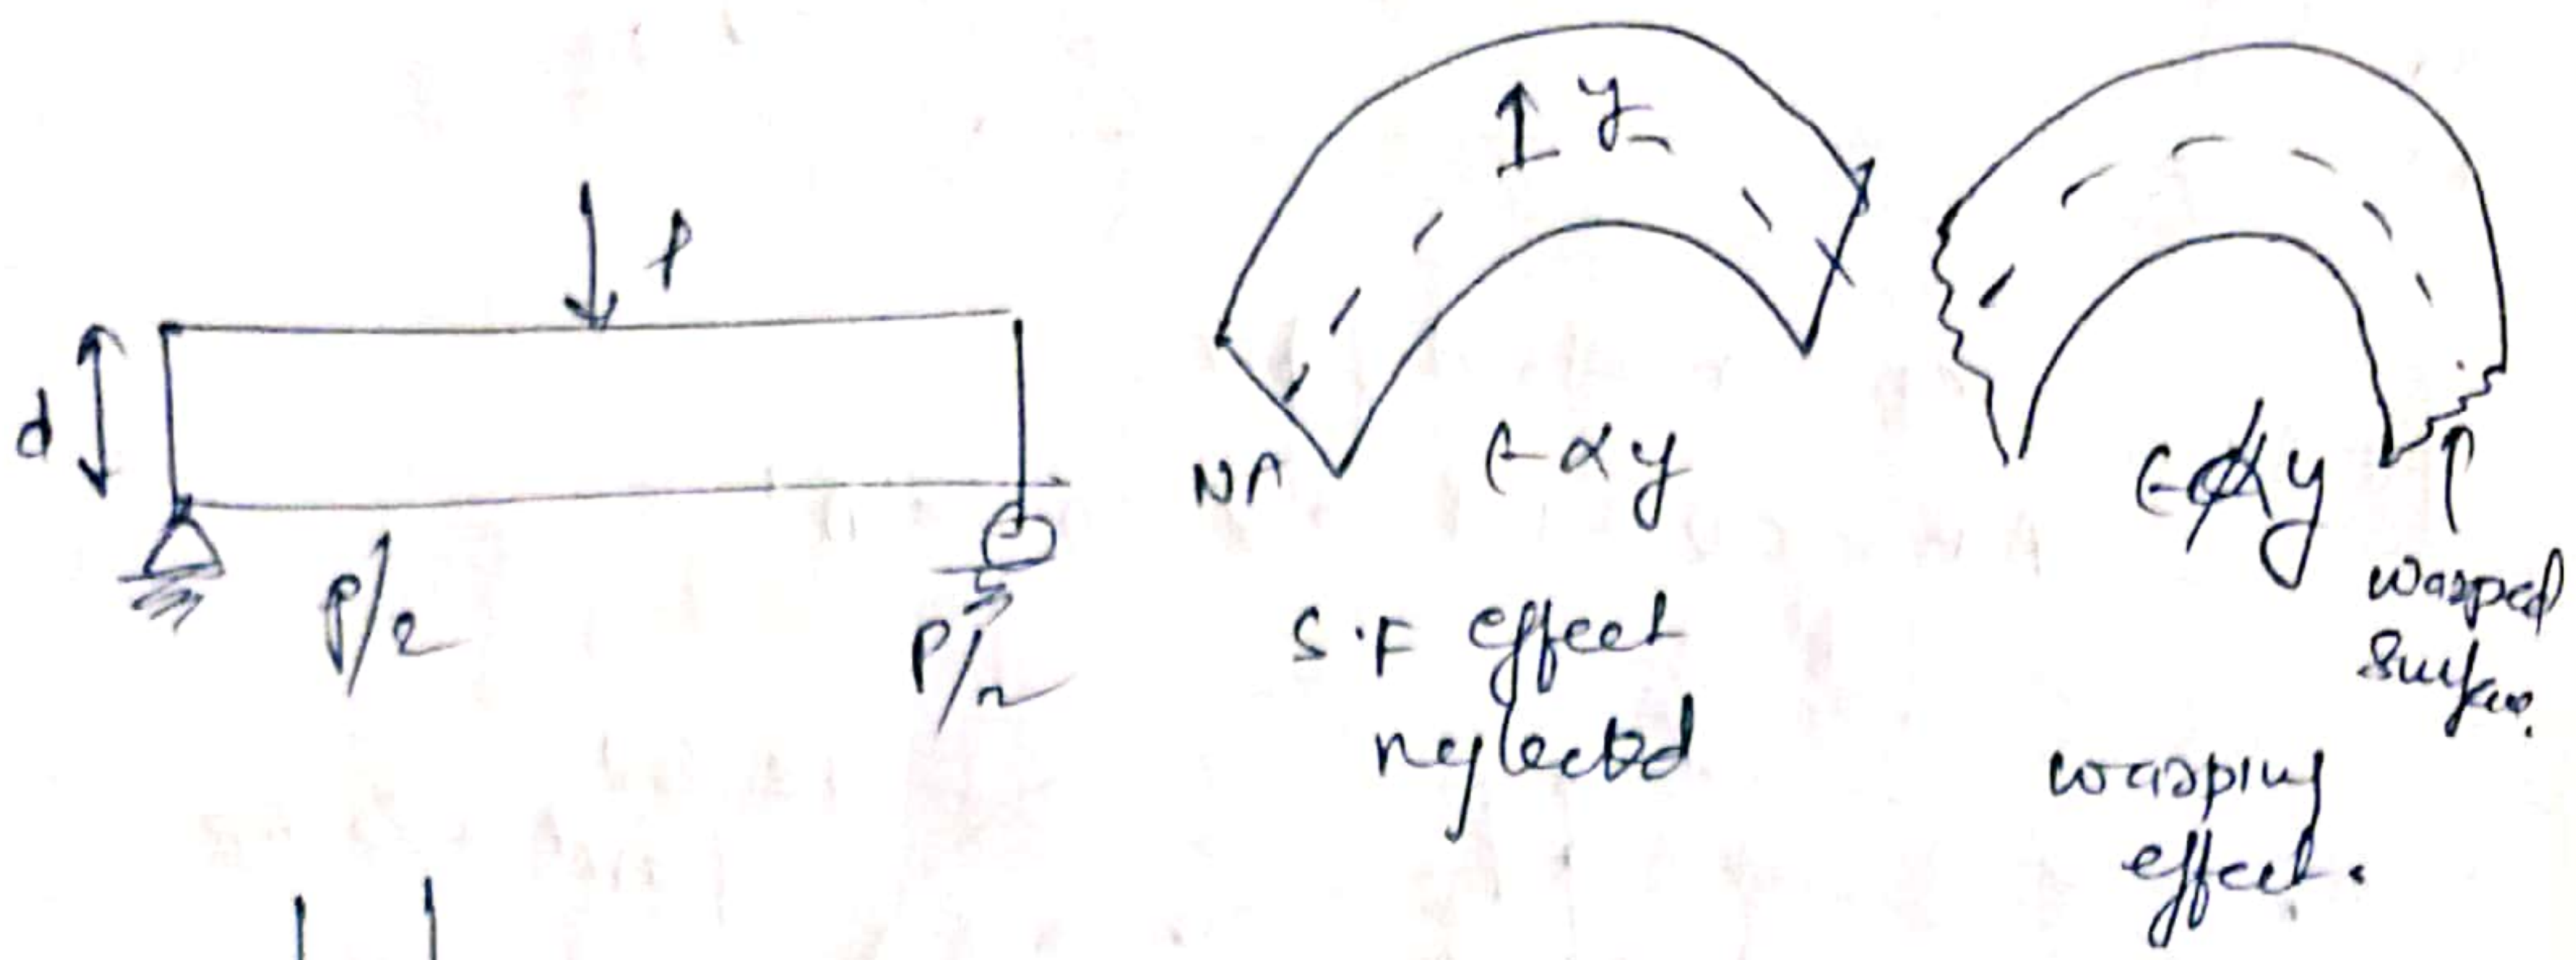 P
d
P/2
P/2
y
NA
ϵ α y
S.F effect
neglected
ϵ α y
warped
surface.
warping
effect.